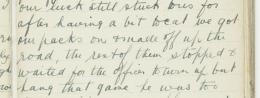 our luck still stuck to us for
after having a bit to eat we got
our packs on & made off up the
road, the rest of them stopped &
waited for the officer to turn up but
hang that game he was too